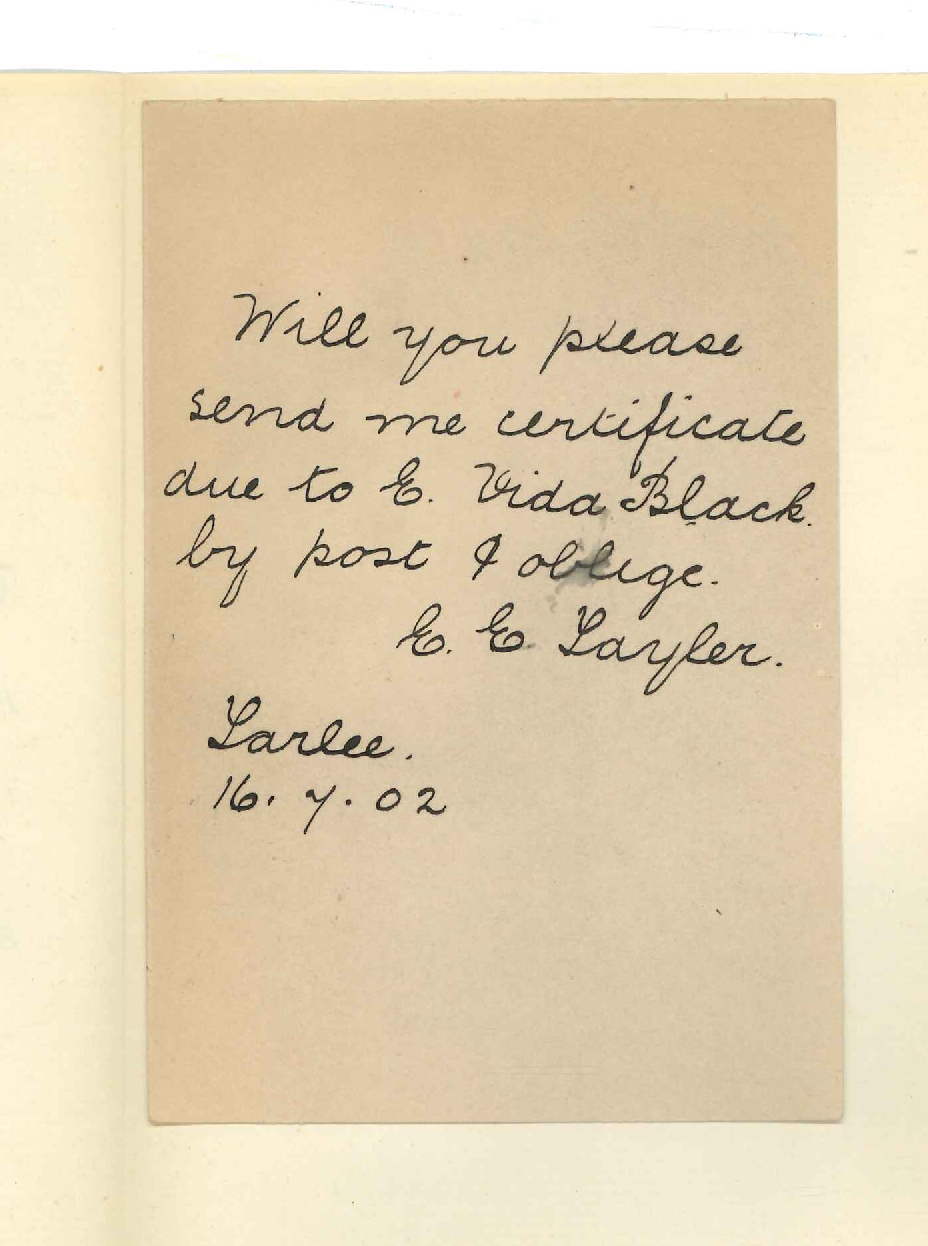 Will you please
send me certificate
due to E. Vida Black.
by post & oblige.
E. E. Tayler.
Tarlee.
16. 7. 02